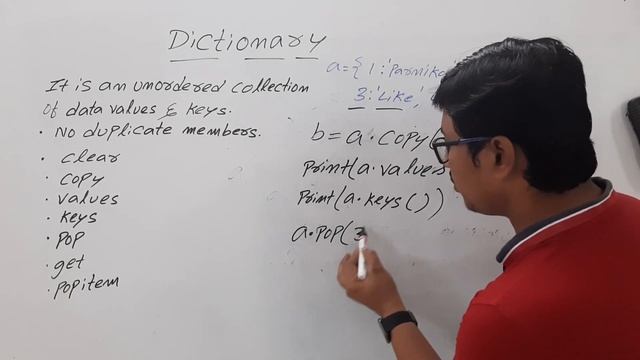 Dictionary
It is an unordered collection
of data values & keys.
• No duplicate members.
• clear
• copy
• values
• keys
• pop
• get
• popitem
a={1:'Parmika
3:'Like',
b=a.copy(
Print(a.values
Print(a.keys())
a.pop(3